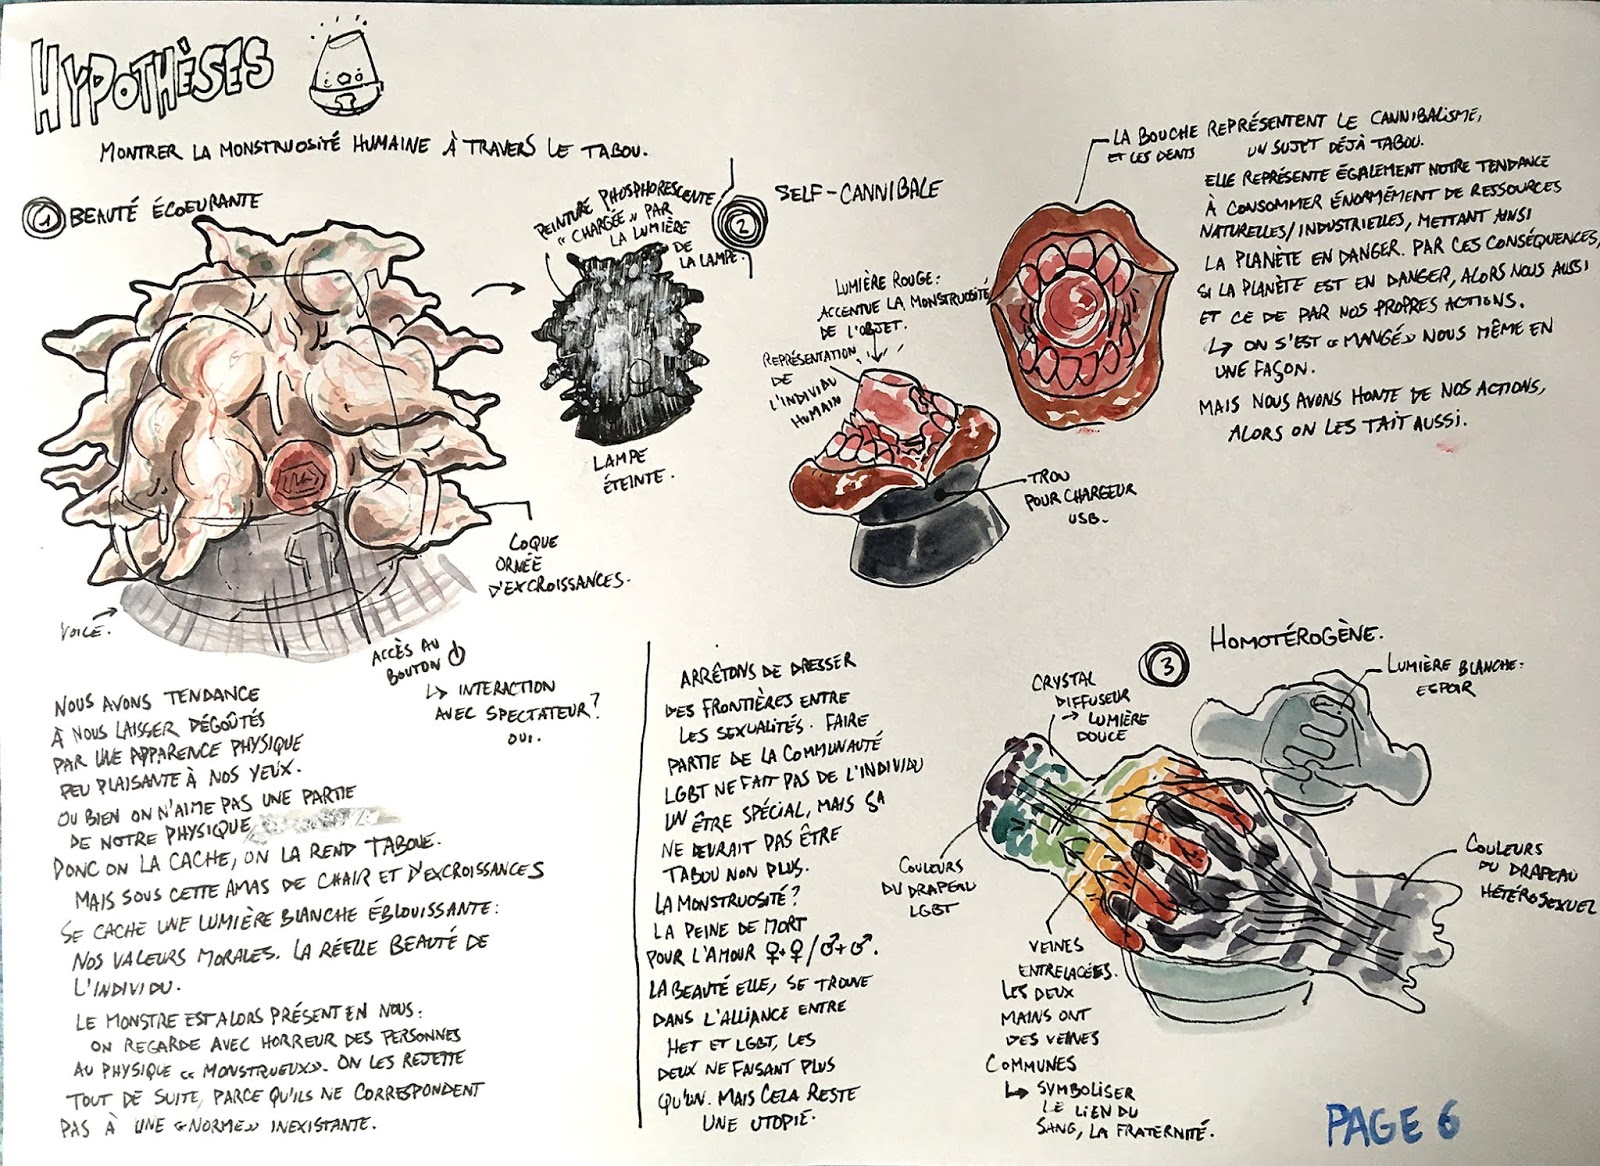 HYPOTHÈSES
MONTRER LA MONSTRUOSITÉ HUMAINE À TRAVERS LE TABOU.
1 BEAUTÉ ÉCOEURANTE
PEINTURE PHOSPHORESCENTE
« CHARGÉE » PAR
LA LUMIÈRE
DE
LA LAMPE.
LAMPE
ÉTEINTE.
COQUE
ORNÉE
D'EXCROISSANCES.
VOILE.
ACCÈS AU
BOUTON
↳ INTERACTION
AVEC SPECTATEUR?
OUI.
NOUS AVONS TENDANCE
À NOUS LAISSER DÉGOÛTÉS
PAR UNE APPARENCE PHYSIQUE
PEU PLAISANTE À NOS YEUX.
OU BIEN ON N'AIME PAS UNE PARTIE
DE NOTRE PHYSIQUE
DONC ON LA CACHE, ON LA REND TABOUE.
MAIS SOUS CETTE AMAS DE CHAIR ET D'EXCROISSANCES
SE CACHE UNE LUMIÈRE BLANCHE ÉBLOUISSANTE:
NOS VALEURS MORALES. LA RÉELLE BEAUTÉ DE
L'INDIVIDU.
LE MONSTRE EST ALORS PRÉSENT EN NOUS:
ON REGARDE AVEC HORREUR DES PERSONNES
AU PHYSIQUE « MONSTRUEUX». ON LES REJETTE
TOUT DE SUITE, PARCE QU'ILS NE CORRESPONDENT
PAS À UNE «NORME» INEXISTANTE.
2 SELF-CANNIBALE
LUMIÈRE ROUGE:
ACCENTUE LA MONSTRUOSITÉ
DE L'OBJET.
REPRÉSENTATION
DE
L'INDIVIDU
HUMAIN
TROU
POUR CHARGEUR
USB.
LA BOUCHE REPRÉSENTENT LE CANNIBALISME,
ET LES DENTS UN SUJET DÉJÀ TABOU.
ELLE REPRÉSENTE ÉGALEMENT NOTRE TENDANCE
À CONSOMMER ÉNORMÉMENT DE RESSOURCES
NATURELLES/INDUSTRIELLES, METTANT AINSI
LA PLANÈTE EN DANGER. PAR CES CONSÉQUENCES,
SI LA PLANÈTE EST EN DANGER, ALORS NOUS AUSSI
ET CE DE PAR NOS PROPRES ACTIONS.
↳ ON S'EST «MANGÉ» NOUS MÊME EN
UNE FAÇON.
MAIS NOUS AVONS HONTE DE NOS ACTIONS,
ALORS ON LES TAIT AUSSI.
3 HOMOTÉROGÈNE.
ARRÊTONS DE DRESSER
DES FRONTIÈRES ENTRE
LES SEXUALITÉS. FAIRE
PARTIE DE LA COMMUNAUTÉ
LGBT NE FAIT PAS DE L'INDIVIDU
UN ÊTRE SPÉCIAL, MAIS ÇA
NE DEVRAIT PAS ÊTRE
TABOU NON PLUS.
LA MONSTRUOSITÉ?
LA PEINE DE MORT
POUR L'AMOUR ♀+♀/♂+♂.
LA BEAUTÉ ELLE, SE TROUVE
DANS L'ALLIANCE ENTRE
HET ET LGBT, LES
DEUX NE FAISANT PLUS
QU'UN. MAIS CELA RESTE
UNE UTOPIE.
CRYSTAL
DIFFUSEUR
→ LUMIÈRE
DOUCE
LUMIÈRE BLANCHE:
ESPOIR
COULEURS
DU DRAPEAU
LGBT
COULEURS
DU DRAPEAU
HÉTÉROSEXUEL
VEINES
ENTRELACÉES.
LES DEUX
MAINS ONT
DES VEINES
COMMUNES
↳ SYMBOLISER
LE LIEN DU
SANG, LA FRATERNITÉ.
PAGE 6